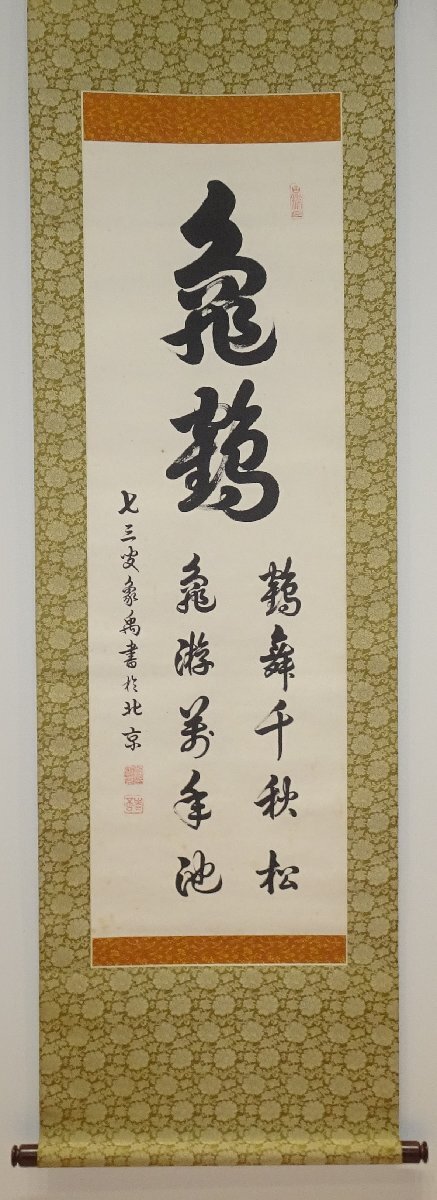 龜鶴
鶴舞千秋松
龜游萬年池
七三叟象禹書於北京